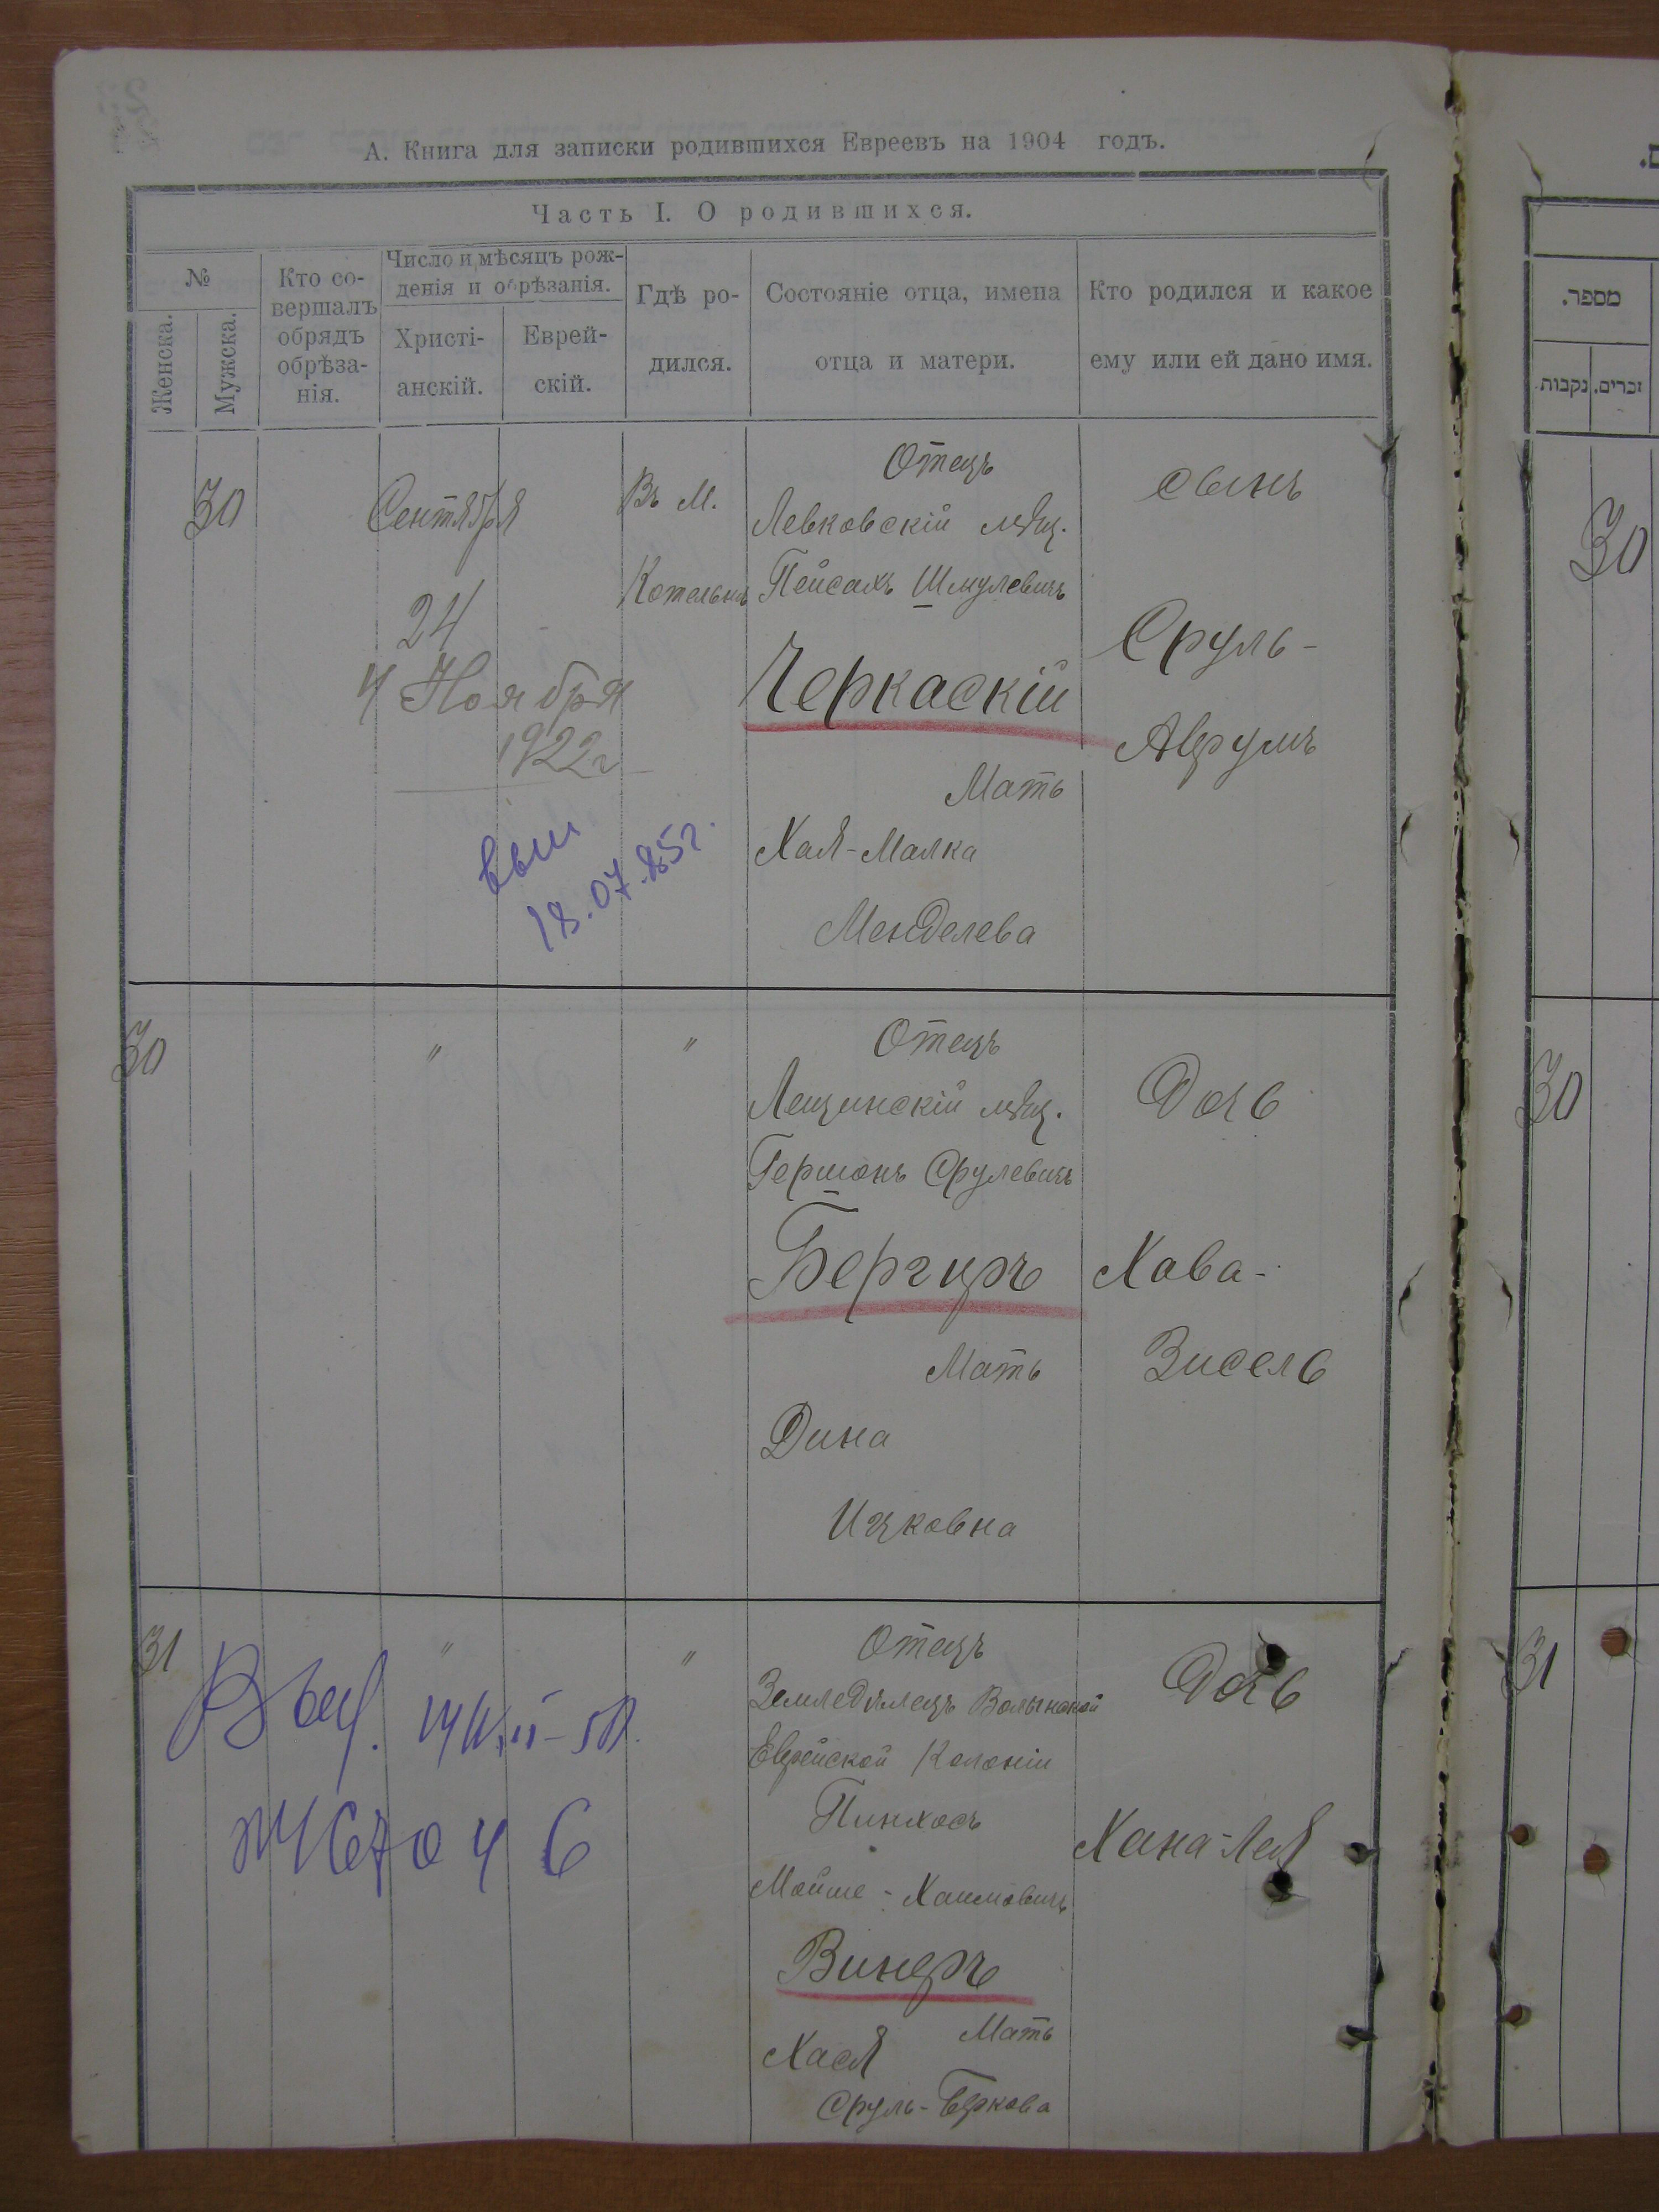 А. Книга для записки родившихся Евреевъ на 1904 годъ.
Часть I. О родившихся.
№
Женска.
Мужска.
Кто со-
вершалъ
обрядъ
обрѣза-
нія.
Число и мѣсяцъ рож-
денія и обрѣзанія.
Христі-
анскій.
Еврей-
скій.
Гдѣ ро-
дился.
Состояніе отца, имена
отца и матери.
Кто родился и какое
ему или ей дано имя.
30
Сентября
24
4 Ноября
1922г
выи
18.07.85г.
Въ М.
Котельнѣ
Отецъ
Левковскій мѣщ.
Пейсахъ Шмулевичъ
Черкаскій
Мать
Хая-Малка
Менделева
сынъ
Сруль-
Аврумъ
30
"
"
Отецъ
Лещинскій мѣщ.
Гершонъ Срулевичъ
Бергеръ
Мать
Дина
Ицковна
Дочь
Хава-
Зисель
31
"
"
Отецъ
Земледѣлецъ Волынской
Еврейской Колоніи
Пинхосъ
Мойше-Хаимовичъ
Винеръ
Мать
Хася
Сруль-Беркова
Дочь
Хана-Лея
מספר.
נקבות
זכרים.
30
30
31